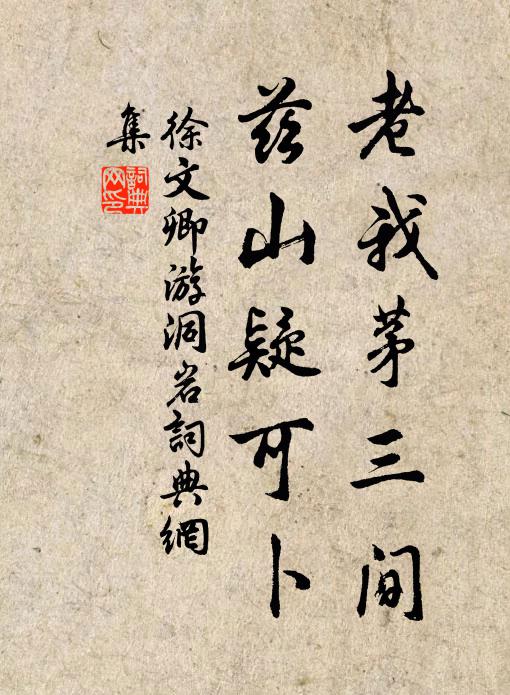 老我茅三间
兹山疑可卜
徐文卿游洞岩詞典網
集
詞典网印